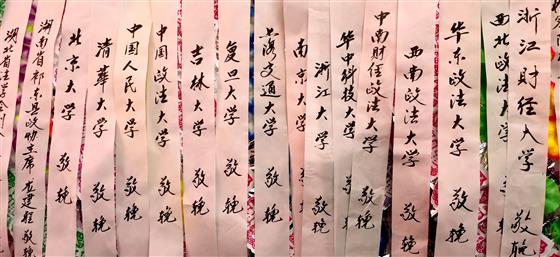 湖北省法学会刑
湖南省祁东县政协主席 敬挽
北京大学 敬挽
清华大学 敬挽
中国人民大学 敬挽
中国政法大学 敬挽
吉林大学 敬挽
复旦大学 敬挽
上海交通大学 敬挽
南京大学
浙江大学 敬挽
华中科技大学
中南财经政法大学 敬挽
西南政法大学 敬挽
华东政法大学 敬挽
西北政法大学
浙江财经大学 敬挽